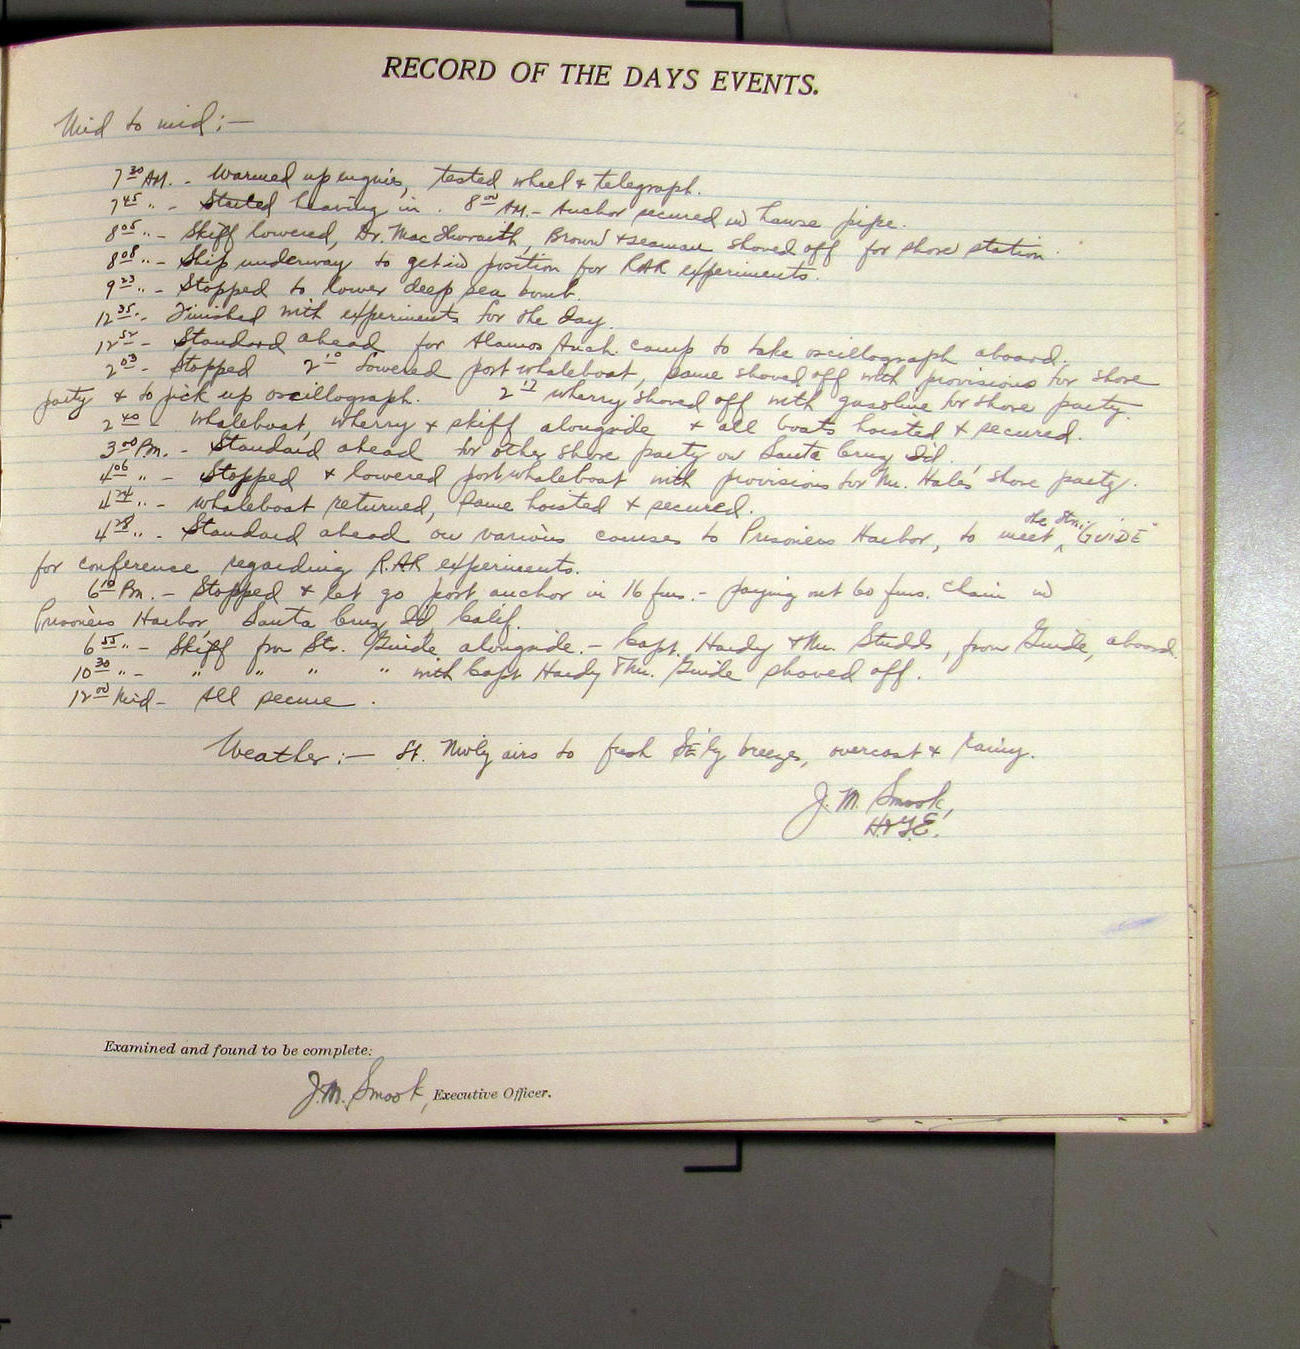 RECORD OF THE DAYS EVENTS.
Mid to mid;—
7 30 AM. - Warmed up engines, tested wheel & telegraph.
7 45 " - Started heaving in. 8 00 AM. - Anchor secured in hawse pipe.
8 05 " - Skiff lowered, Dr. Mac Ilwraith, Brown & seaman shoved off for shore station.
8 08 " - Ship underway to get in position for RAR experiments.
9 23 " - Stopped to lower deep sea bomb.
12 35 " - Finished with experiments for the day.
12 52 - Standard ahead for Alamos Anch. camp to take oscillograph aboard.
2 03 - Stopped 2 10 Lowered port whaleboat, same shoved off with provisions for shore
party & to pick up oscillograph. 2 17 wherry shoved off with gasoline for shore party.
2 40 - whaleboat, wherry & skiff alongside & all boats hoisted & secured.
3 00 Pm. - Standard ahead for other shore party on Santa Cruz Id.
4 06 " - Stopped & lowered port whaleboat with provisions for Mr. Hale's shore party.
4 24 " - whaleboat returned, same hoisted & secured.
4 28 " - Standard ahead on various courses to Prisoners Harbor, to meet the Str. "GUIDE"
for conference regarding R.A.R experiments.
6 10 Pm. - Stopped & let go port anchor in 16 fms. - paying out 60 fms. chain in
Prisoners Harbor, Santa Cruz Id Calif.
6 55 " - Skiff from Str. Guide alongside. - Capt. Hardy & Mr. Studds, from Guide, aboard.
10 30 " - " " " " with Capt Hardy & Mr. Guide shoved off.
12 00 Mid - All secure.
Weather:— Lt. Nwly airs to fresh SE'ly breezes, overcast & rainy.
J. M. Smook,
H. & G. E.
Examined and found to be complete:
J. M. Smook, Executive Officer.